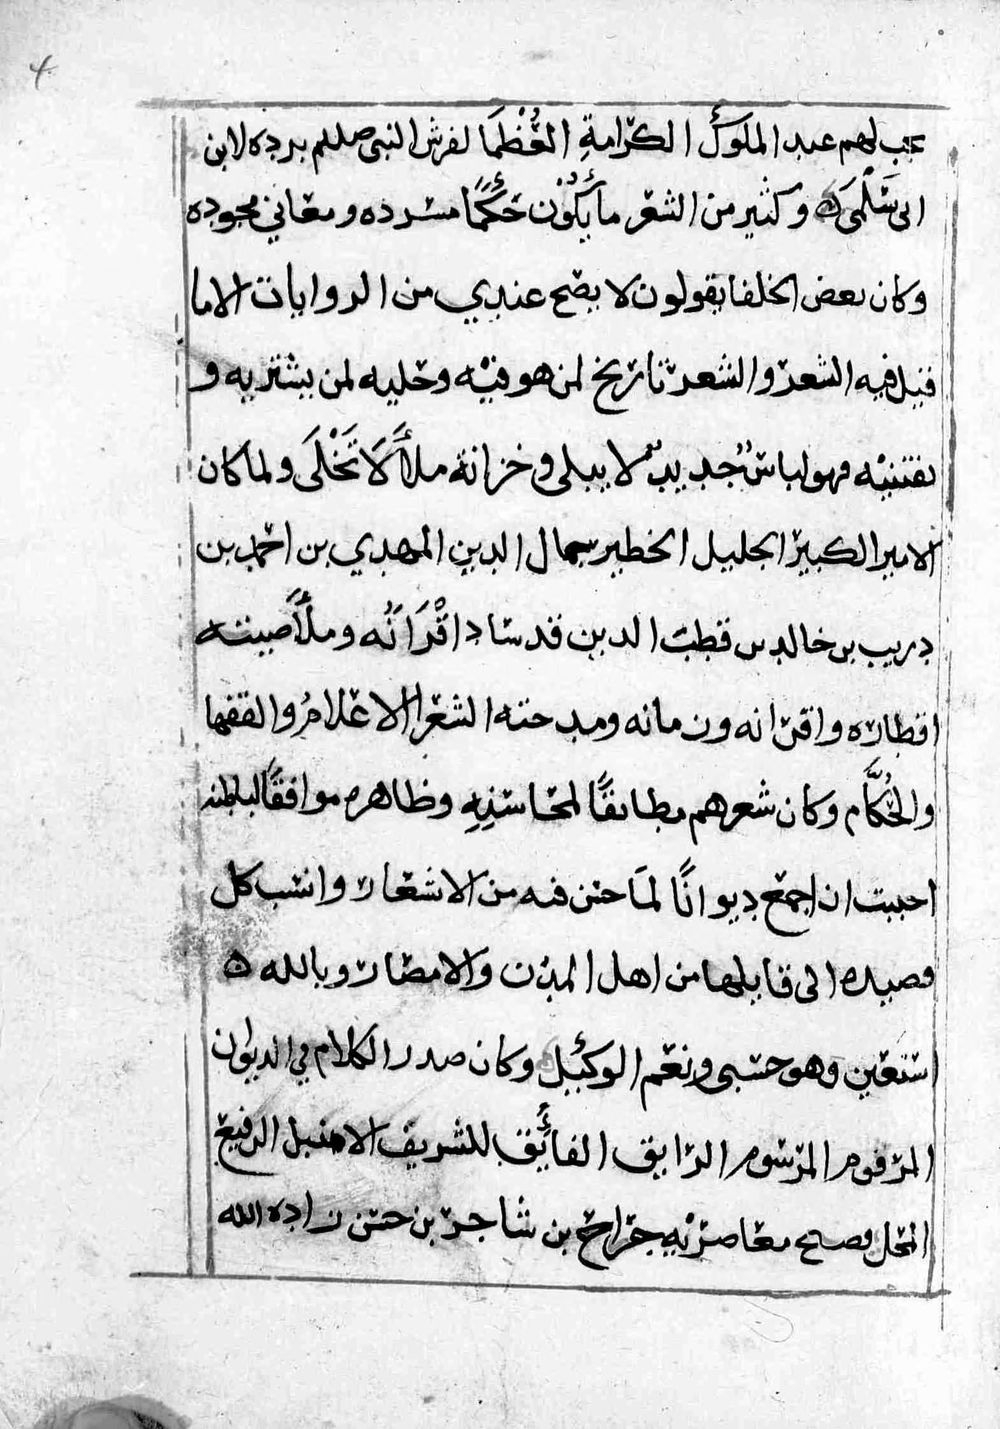 4
تجب لهم عبد الملوك الكرامة العُظمَا لفرش النبي صللم برده لابن
ابى سَلْمَى ۞ وكثير من الشعر ما يَكُوْن حَكَمًا مسرده ومعاني مجوده
وكان بعض الخلفا يقولون لا يصح عندي من الروايات الا ما
قيل فيه الشعر والشعر تاريخ لمن هو فيْه وحليه لمن يشتريه و
يقتنيْه فهو لباسٌ جديدٌ لا يبلى وخزانة ملأَ لَا تَخْلَى ولما كان
الامير الكبير الجليل الخطير جمال الدين المهدي بن احمد بن
دريب بن خالد بن قطب الدين قد ساد اقْرَانَه وملأَ صيته
اقطاره واقرانه وزمانه ومدحته الشعرا الاعلامُ والفقها
والحُكَّام وكان شعرهم مطابقًا لمحاسنِهِ وظاهره موافقًا لباطنه
احببت ان اجمع ديوانًا لمَا حسن فيه من الاشعار وانسب كل
قصيده الى قايلها من اهل المدن والامصار وبالله ۞
استعين وهو حسبى ونعم الوكيل وكان صدر الكلام في الديوان
المرقوم المرسوم الرايق الفائِق للشريف الامثل الرفيع
المحل فصيح معاصريْهِ جراح بن شاجر بن حسن زاده الله